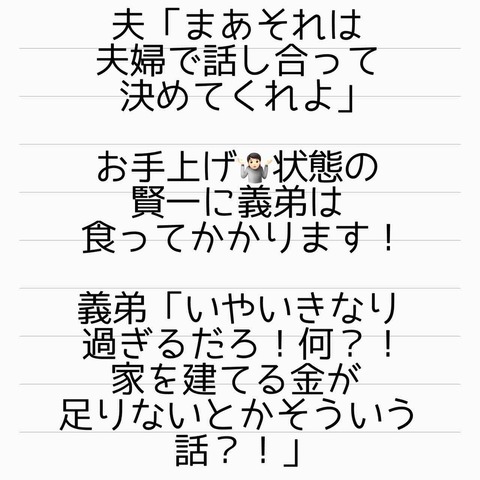 夫「まあそれは
夫婦で話し合って
決めてくれよ」
お手上げ🤷🏻‍♂️状態の
賢一に義弟は
食ってかかります！
義弟「いやいきなり
過ぎるだろ！何？！
家を建てる金が
足りないとかそういう
話？！」